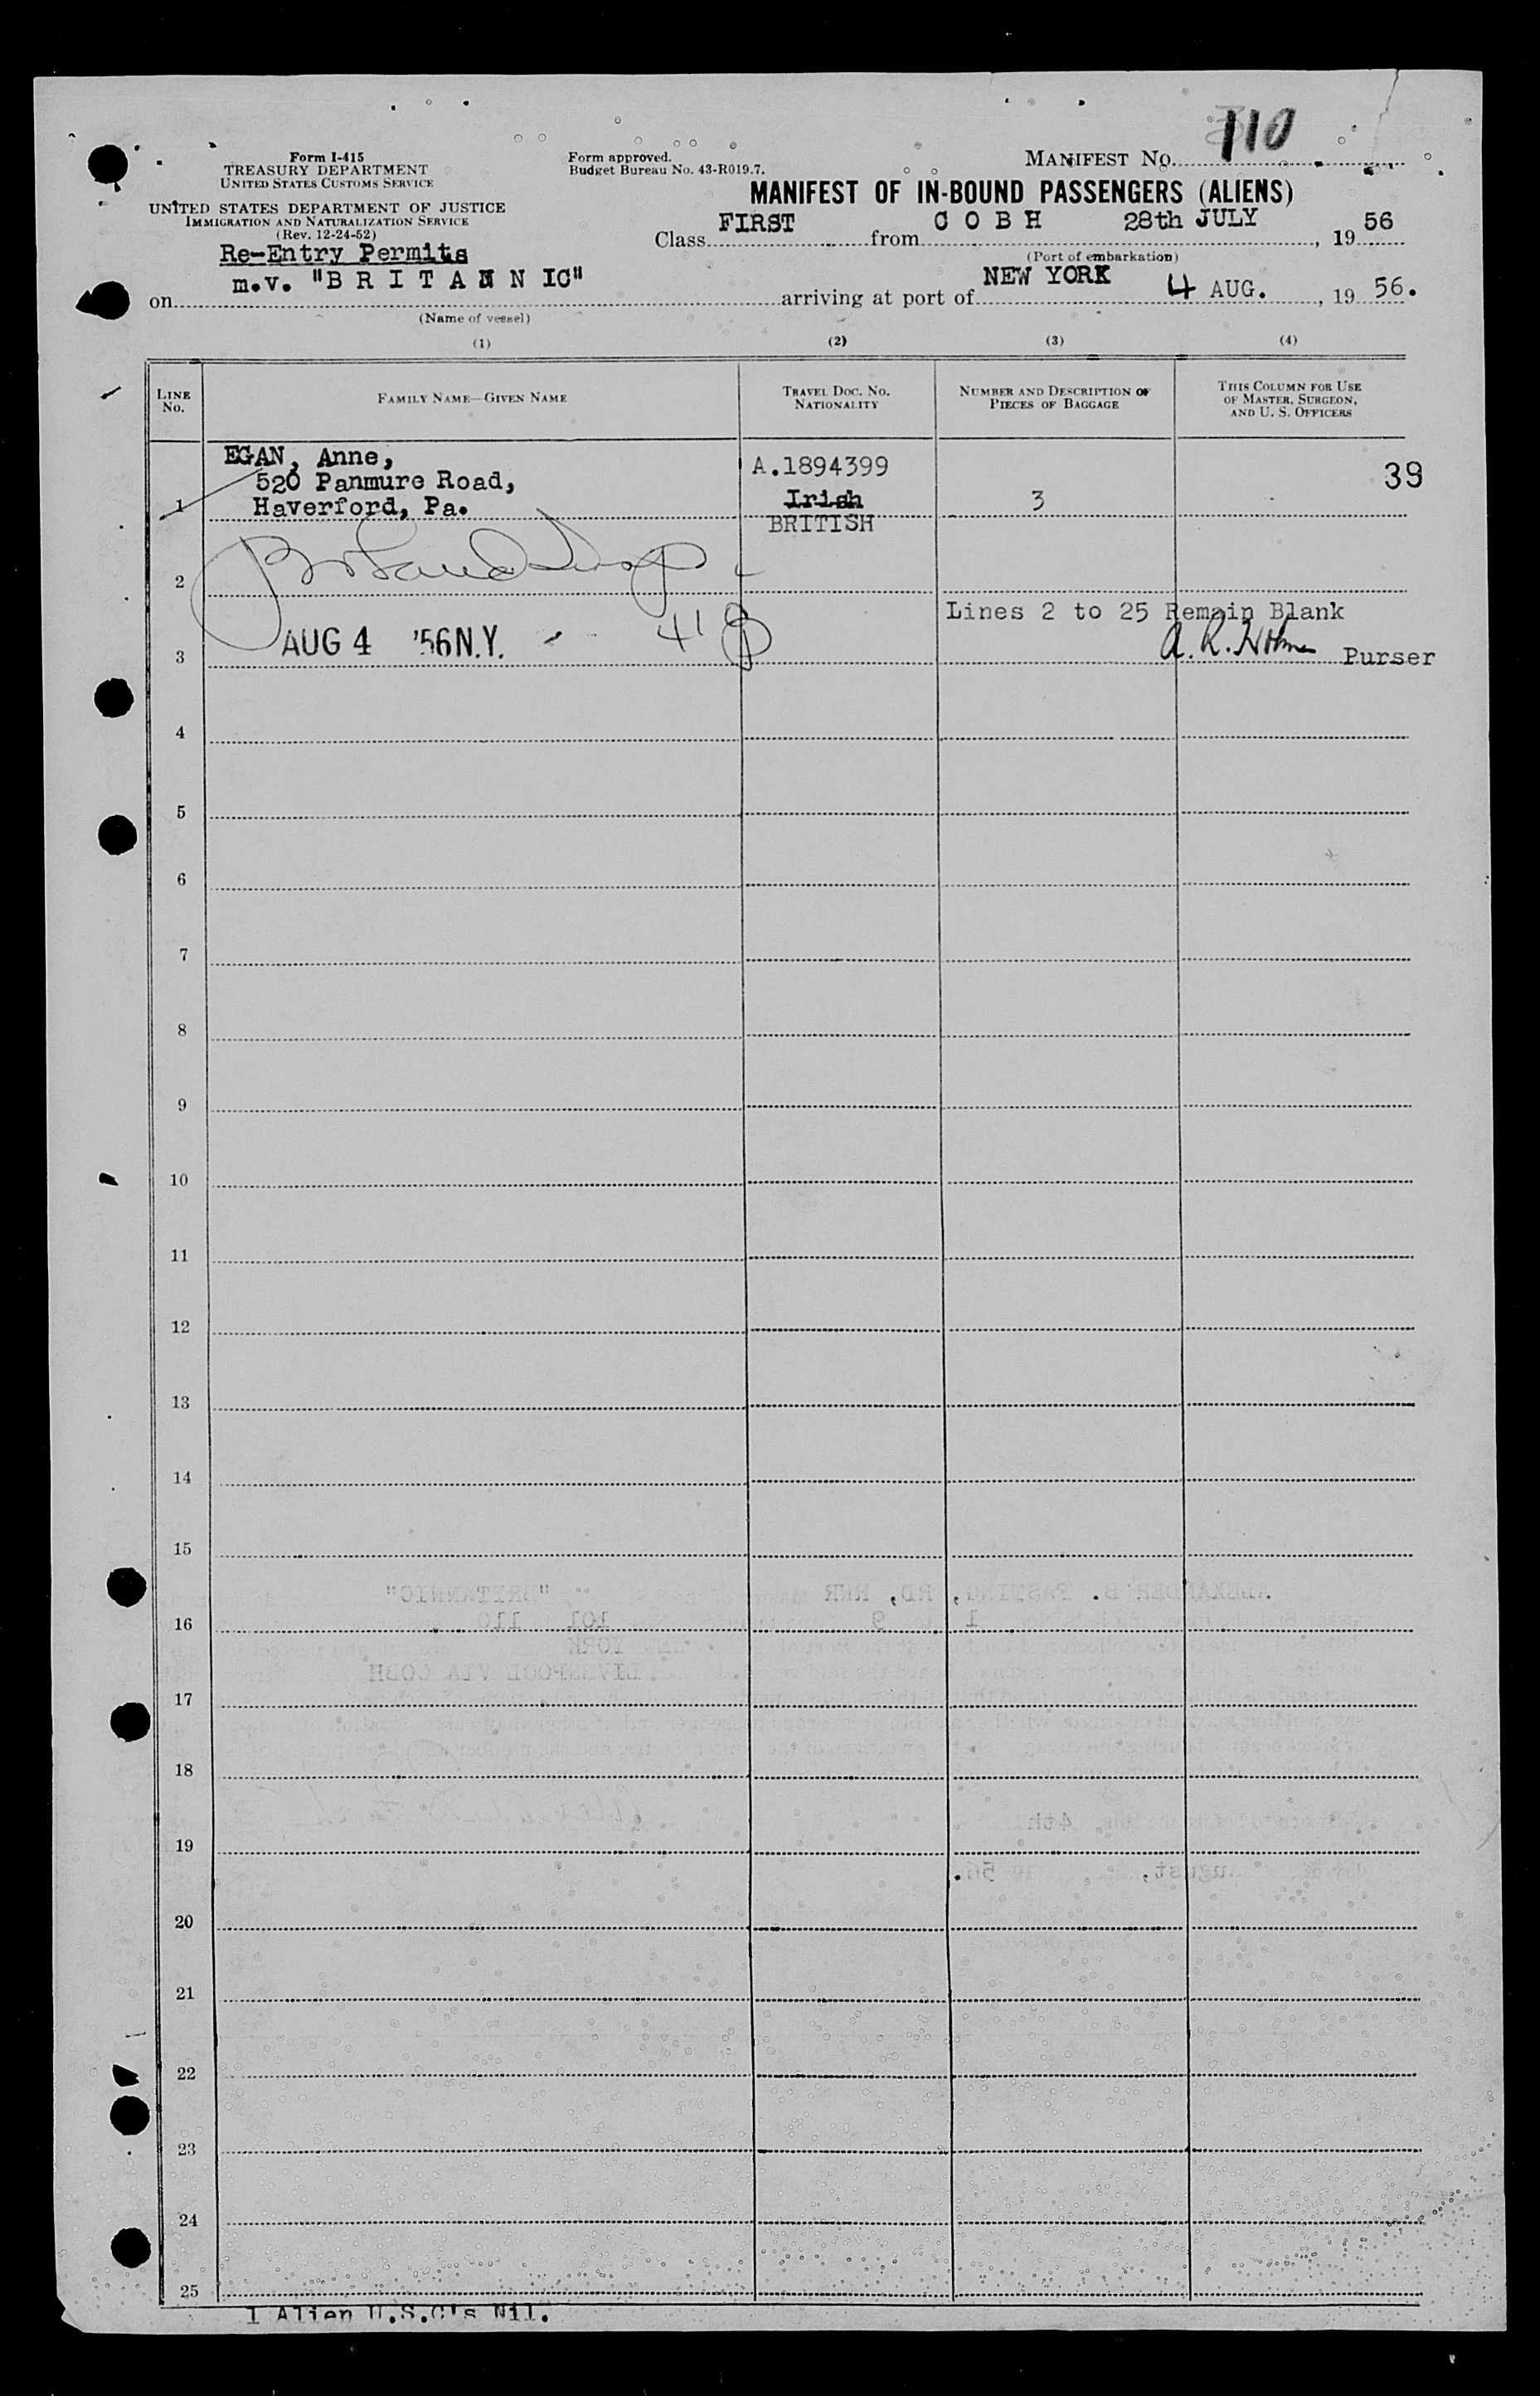 110
Form I-415
TREASURY DEPARTMENT
UNITED STATES CUSTOMS SERVICE
Form approved.
Budget Bureau No. 43-R019.7.
MANIFEST No.
UNITED STATES DEPARTMENT OF JUSTICE
IMMIGRATION AND NATURALIZATION SERVICE
(Rev. 12-24-52)
MANIFEST OF IN-BOUND PASSENGERS (ALIENS)
Class FIRST from C O B H 28th JULY, 19 56
(Port of embarkation)
Re-Entry Permits
on m.v. "B R I T A N N IC" arriving at port of NEW YORK 4 AUG., 19 56.
(Name of vessel)
(1) (2) (3) (4)
LINE No. FAMILY NAME—GIVEN NAME TRAVEL DOC. NO. NATIONALITY NUMBER AND DESCRIPTION OF PIECES OF BAGGAGE THIS COLUMN FOR USE OF MASTER, SURGEON, AND U. S. OFFICERS
EGAN, Anne, A.1894399 39
520 Panmure Road,
1 Haverford, Pa. Irish 3
BRITISH
2
Lines 2 to 25 Remain Blank
AUG 4 '56 N.Y. 41
3 Purser
4
5
6
7
8
9
10
11
12
13
14
15
16
17
18
19
20
21
22
23
24
25
1 Alien U.S.C's Nil.